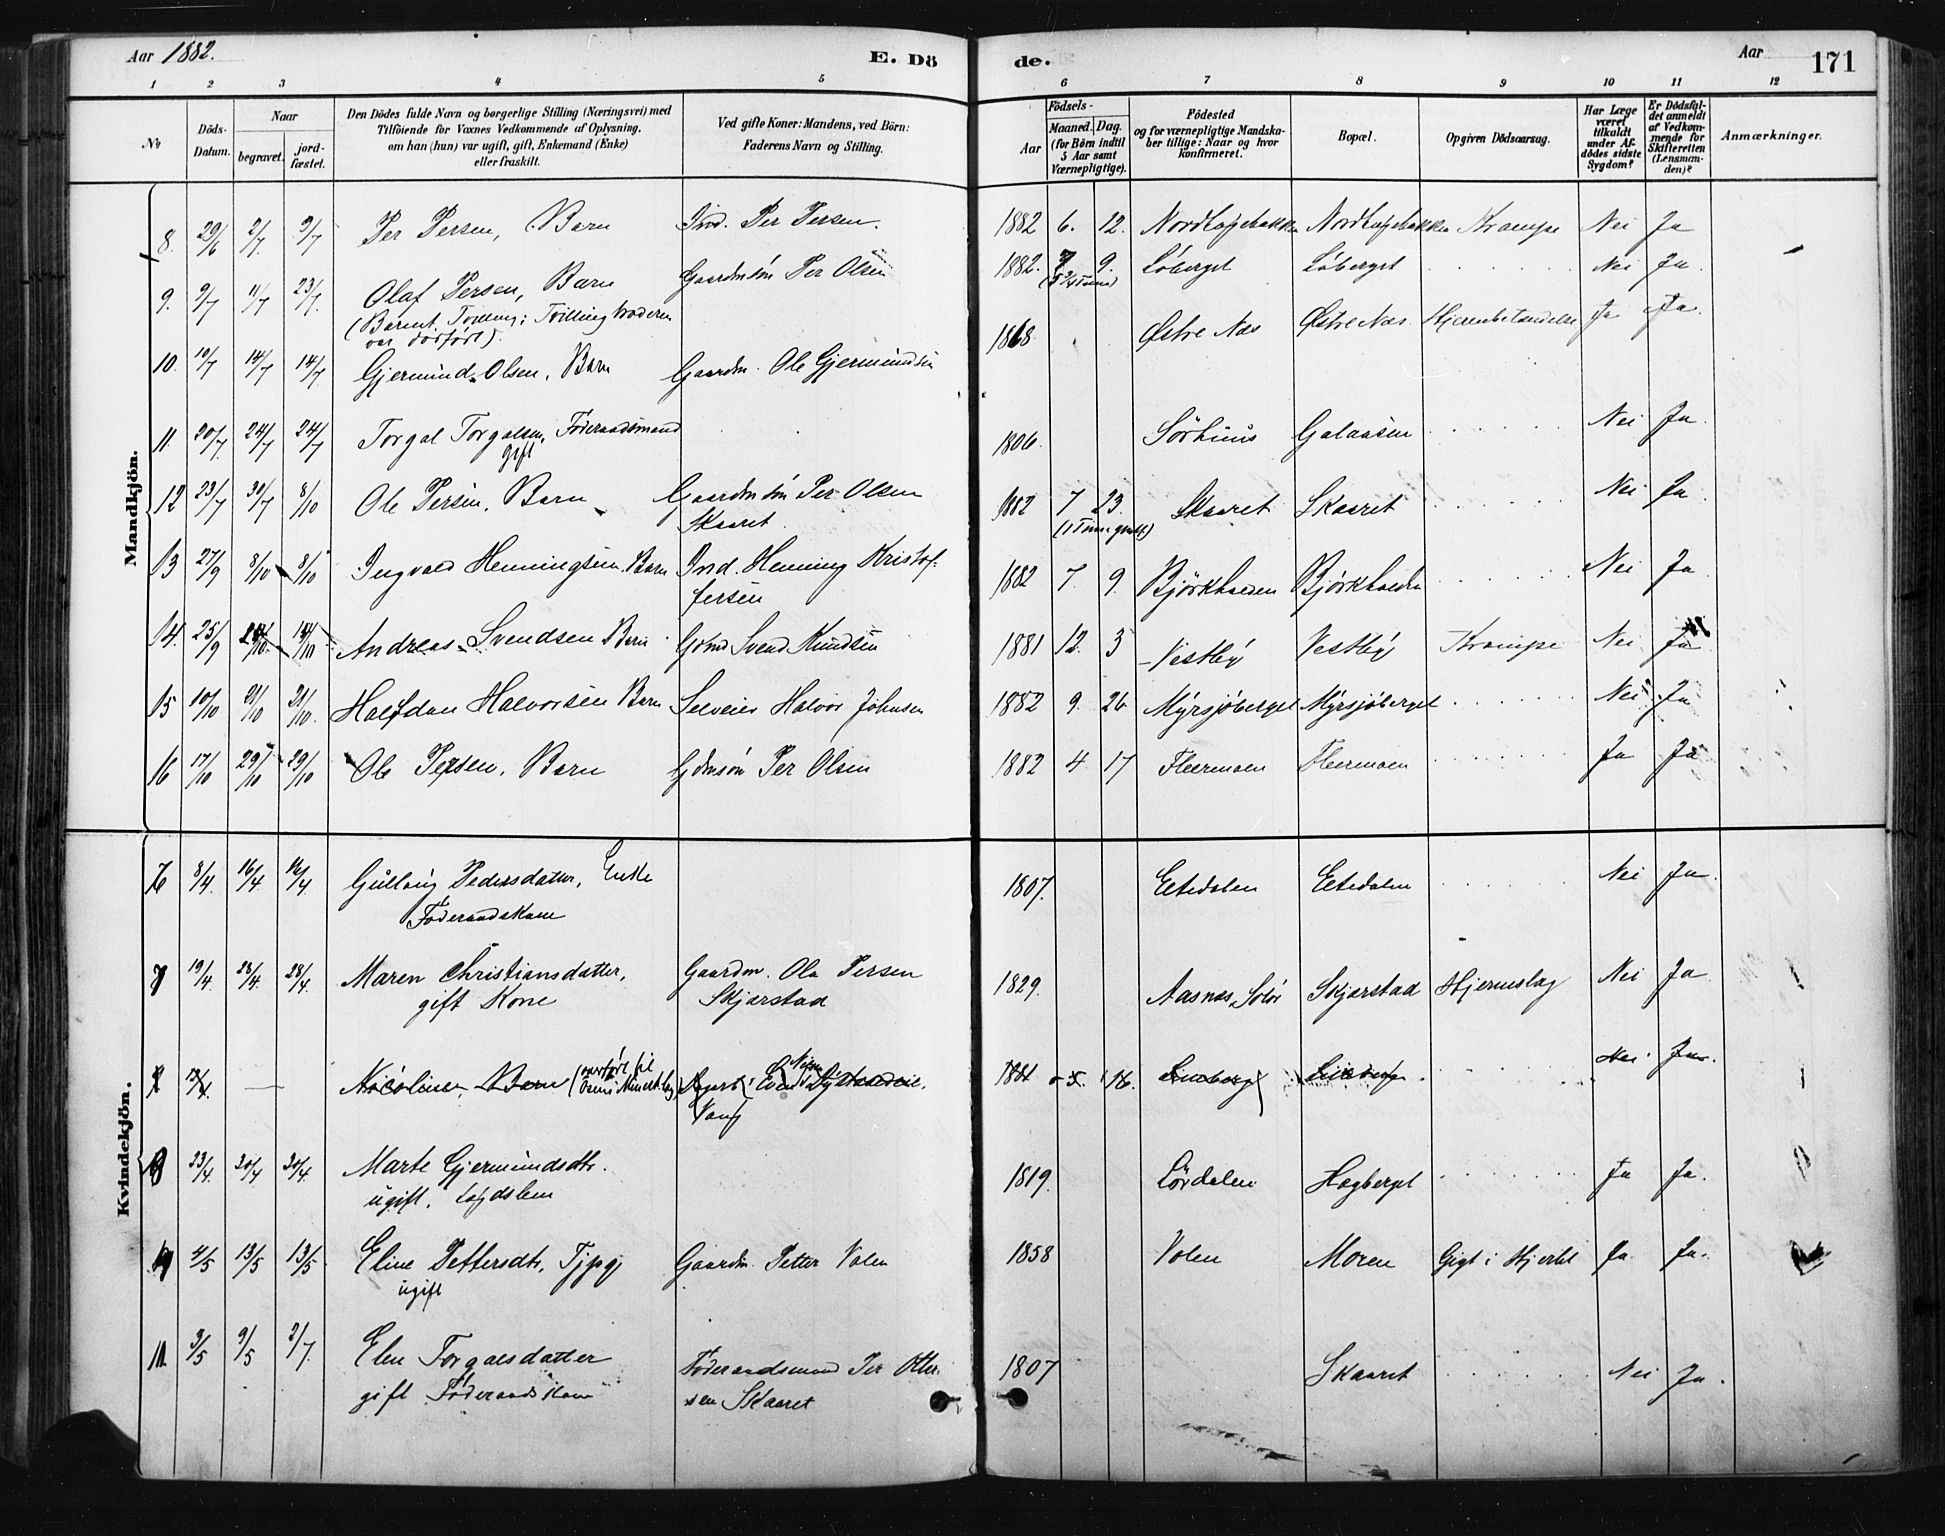 Aar 1882. E. Dö de. Aar 171
1 2 3 4 5 6 7 8 9 10 11 12
No
Döds-Datum.
Naar
begravet. jord-fæstet.
Den Dödes fulde Navn og borgerlige Stilling (Næringsvei) med
Tilföiende for Voxnes Vedkommende af Oplysning,
om han (hun) var ugift, gift, Enkemand (Enke)
eller fraskilt.
Ved gifte Koner: Mandens, ved Börn:
Faderens Navn og Stilling.
Födsels-
Aar Maaned. Dag.
(for Börn indtil
5 Aar samt
Værnepligtige).
Födested
og for værnepligtige Mandska-
ber tillige: Naar og hvor
konfirmeret.
Bopæl.
Opgiven Dödsaarsag.
Har Læge
været
tilkaldt
under Af-
dödes sidste
Sygdom?
Er Dödsfal-
det anmeldt
af Vedkom-
mende for
Skifteretten
(Lensman-
den)?
Anmærkninger.
Mandkjön.
8. 29/6 2/7 2/7 Per Persen, Barn Ind. Per Persen. 1882 6. 12. Krampe Nei Ja
9. 9/7 11/7 23/7 Olaf Persen, Barn Gaardmsön Per Olsen 1882. 7 9. Löberget Löberget Nei Ja
(Barnet Tvilling; Tvillingbroderen
var dödfödt).
10. 10/7 14/7 14/7 Gjermund Olsen, Barn Gaardm. Ole Gjermundsen 1868 Østre Næs Østre Næs Hjernebetændelse Ja Ja.
11. 20/7 24/7 24/7 Torgal Torgalsen, Föderaadsmand 1806. Sörhuus Galaasen Nei Ja
gift
12 23/7 30/7 8/10 Ole Persen, Barn Gaardmsön Per Olsen 1882 7 23. Skaaret Skaaret Nei Ja
Skaaret
13 27/9 8/10 8/10 Ingvald Henningsen Barn Ind. Henning Kristof- 1882 7. 9. Björkhaeden Björkhaeden Nei Ja
fersen
14. 25/9 14/10 Andreas Svendsen Barn Gdmd Svend Knudsen 1881 12. 3 Vestby Vestby Krampe Nei Ja
15 10/10 21/10 21/10. Halfdan Halvorsen Barn Selveier Halvor Johnsen 1882 9. 26 Myrsjöberget Myrsjöberget Nei Ja
16 17/10 29/10 29/10 Ole Persen, Barn Gdmsön Per Olsen 1882 4 17 Fleermoen Fleermoen Ja Ja
Kvindekjön.
6 8/4. 16/4 16/4 Gulloug Pedersdatter, Enke 1807. Eltedalen Eltedalen Nei Ja.
Föderaadskone
7 19/4. 28/4. 28/4. Maren Christiansdatter, Gaardm. Ola Persen 1829. Aasnæs, Solör Skjærstad Hjerneslag Nei Ja
gift Kone Skjærstad
Nicoline, Barn (overfört til Nei. Ja.
Vang
23/4. 30/4 30/4. Marte Gjermundsdtr. 1819. Lördalen Hagberget Ja Ja.
ugift. Lægdslem
4/5 13/5 13/5 Eline Pettersdtr, Tjpg Gaardm. Petter Volen 1858 Volen Moren Gigt i Hjertet Ja. Ja.
ugift
3/5 9/5 2/7. Elen Torgalsdatter Föderaadsmand Per Otter- 1807 Skaaret Nei Ja.
gift Föderaadskone sen Skaaret